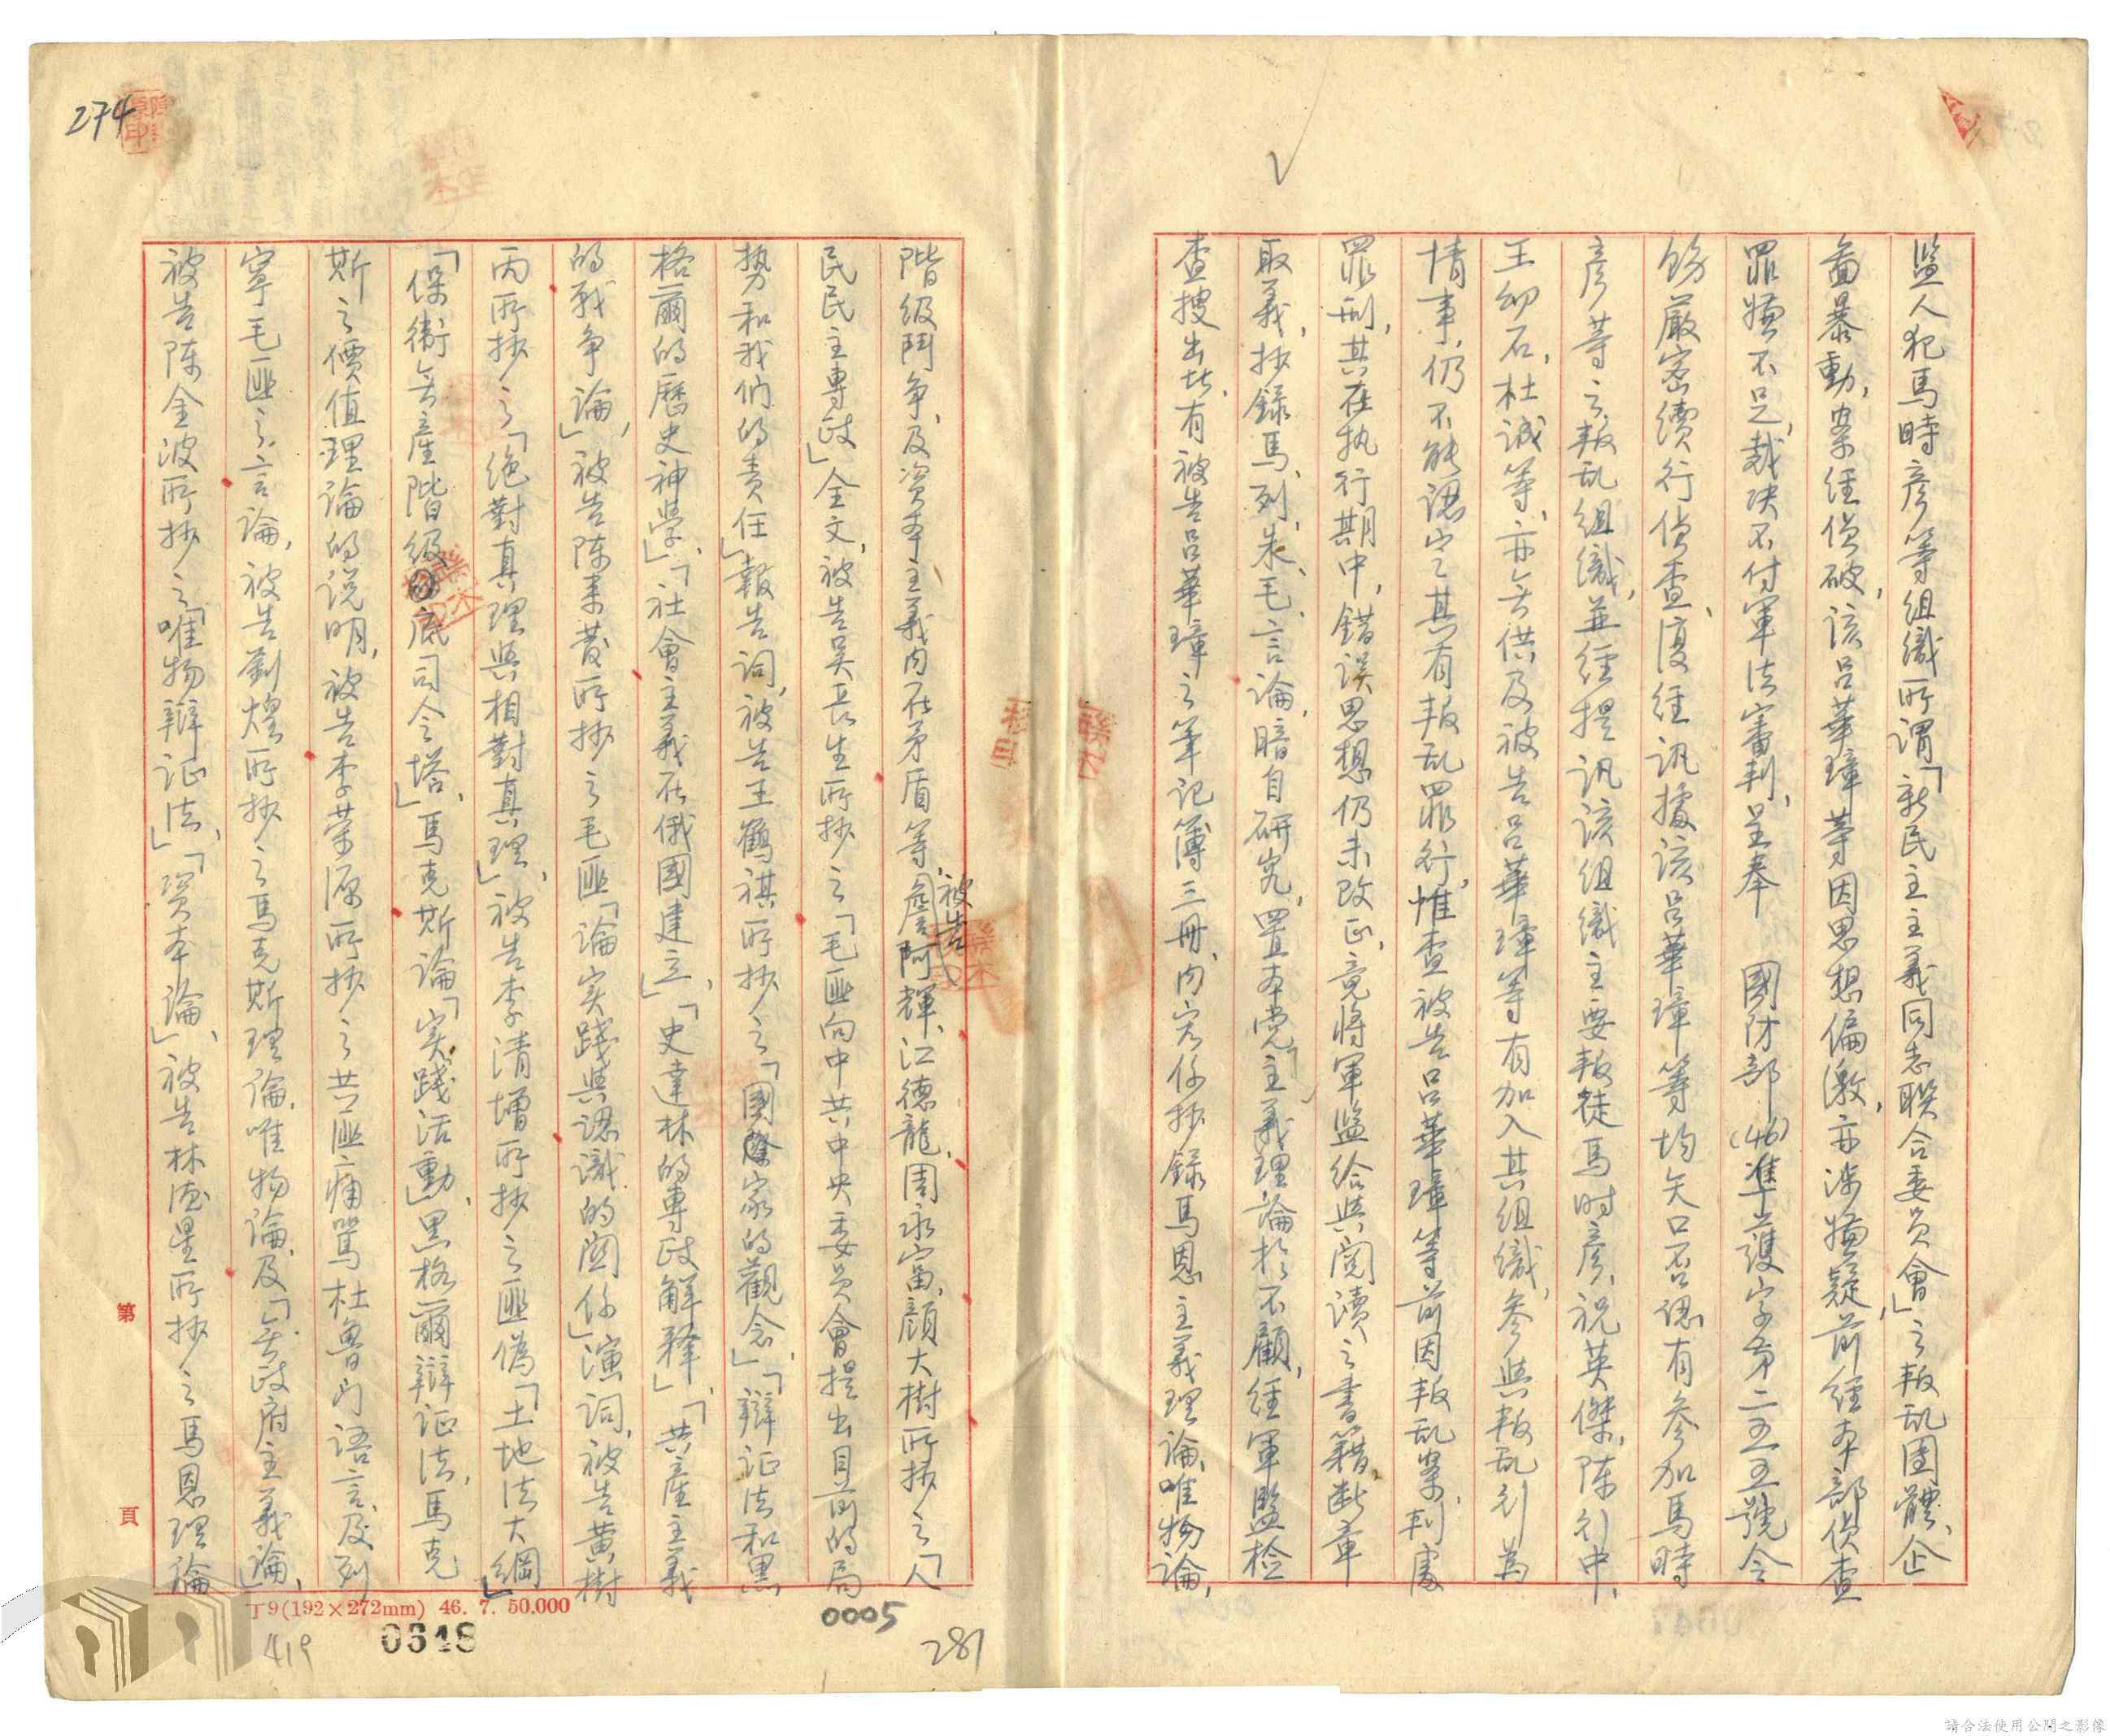 監人犯馬時彥等組織所謂「新民主主義同志聯合委員會」之叛乱團體,企
畐暴動,案經偵破,該呂華璋等因思想偏激,亦涉嫌疑,前經本部偵查
罪嫌不足,裁决不付軍法審判,呈奉 國防部(46)準護字第二五五號令
飭嚴密續行偵查,復經訊據該呂華璋等均矢口否認有參加馬時
彥等之叛乱組織,並經提訊該組織主要叛徒馬时彥,祝英傑,陈行中,
王幼石,杜誠等,亦无供及被告呂華璋等有加入其組織,參與叛乱行為
情事,仍不能認定其有叛乱罪行,惟查被告呂華璋等前因叛乱案,判處
罪刑,其在执行期中,錯误思想仍未改正,竟將軍監給與閱讀之書籍,断章
取義,抄錄馬、列、朱、毛、言論,暗自研究,置本党主義理論於不顧,經軍監检
查搜出者,有被告呂華璋之筆记簿三冊,内容係抄錄馬恩主義理論,唯物論,
階級鬥争,及資本主義内在矛盾等,被告詹阿輝、江德龍,周永富,顏大樹所抄之「人
民民主專政」全文,被告吴長生所抄之「毛匪向中共中央委員會提出目前的局
势和我们的责任」報告詞,被告王鶴祺所抄之「國際家的觀念」,「辯证法和黑
格爾的歷史神學」,「社會主義在俄國建立」,「史達林的專政解释」,「共產主義
的戰争論」,被告陈来發所抄之毛匪「論实践與認識的関係」演詞,被告黄樹
丙所抄之「绝對真理與相對真理」,被告李清增所抄之匪偽「土地法大綱」
「保衛无產階級底司令塔」,馬克斯論「实踐活動」,黑格爾辯证法,馬克
斯之價值理論的说明,被告李荣源所抄之共匪痛駡杜魯门语言,及列
寧毛匪之言論,被告劉煌所抄之馬克斯理論,唯物論,及「无政府主義論」,
被告陈金波所抄之「唯物辯证法」,「资本論」,被告林德星所抄之馬恩理論
274
第
頁
丁9(192×272mm) 46. 7. 50,000
0005
281
419
0648
請合法使用公開之影像